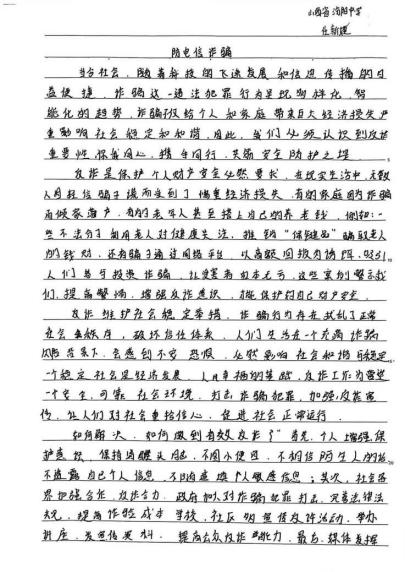 山西省汾阳中学
任新婕
防电信诈骗
当给社会，随着科技的飞速发展和信息传播的日
益便捷，诈骗这一违法犯罪行为呈现多样化、智
能化的趋势，诈骗不仅给个人和家庭带来巨大经济损失严
重影响社会稳定和和谐，因此，我们必须认识到反诈
重要性，你我同心，携手同行，共筑安全防护之堤
反诈是保护个人财产安全必然要求，在现实生活中，无数
人因轻信骗子谎而受到了惨重经济损失，有的家庭因为诈骗
而倾家荡产，有的老年人甚至搭上自己的养老钱，例如：一
些不法分子利用老人对健康关注，推销“保健品”骗取老人
的钱财，还有骗子通过网络平台，以高额回报为诱饵，吸引
人们参与投资诈骗，让受害者血本无亏，这些案例警示我
们，提高警惕，增强反诈意识，才能保护好自己财产安全。
反诈维护社会稳定举措，诈骗行为存在扰乱了正常
社会秩序，破坏信任体系，人们生活在一个充满诈骗
风险 会感到不安 恐惧，必然影响社会和谐与稳定
一个稳定社会是经济发展、人民幸福的基础，反诈工作为营造
一个安全，可靠社会环境，打击诈骗犯罪，加强反诈宣
传，让人们对社会重拾信心，促进社会正常运行。
如何解决，如何做到有效反诈？首先，个人增强保
护意识，保持清醒头脑，不图小便宜，不相信陌生人的话
不透露自己个人信息，不随意填个人敏感信息；其次，社会各
界把强合作，反诈合力，政府加大对诈骗犯罪打击，完善法律法
规，提高诈骗成本 学校，社区明宣传反诈活动，举办
讲座，发宣传资料，提高公众反诈能力，最后，媒体发挥